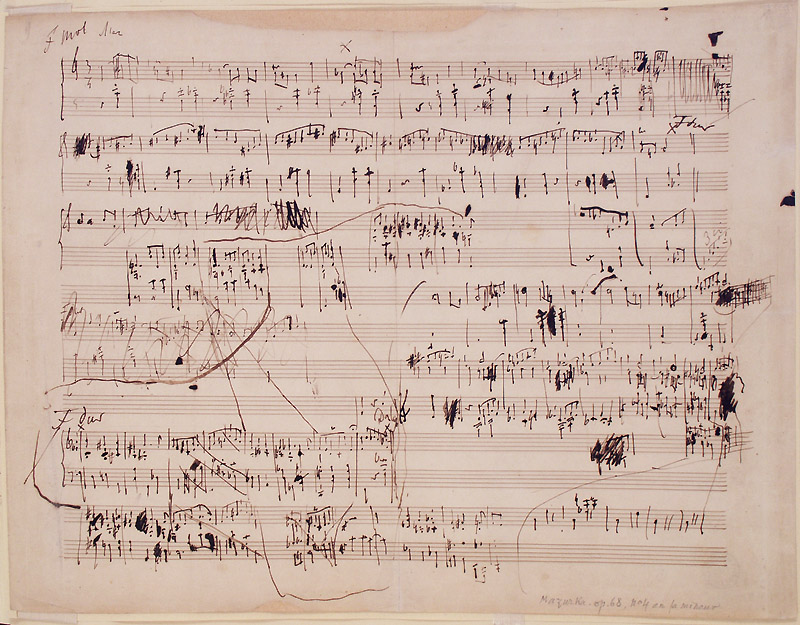 F mol Maz
F dur
F dur
Mazurka op. 68, No 4 en fa mineur